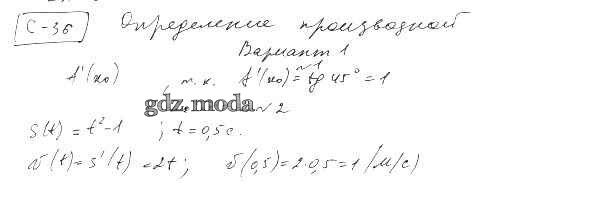 С-36 Определение производной
Вариант 1
№1
f'(x₀) , т.к. f'(x₀) = tg 45° = 1
gdz.moda
№2
S(t) = t²-1 ; t = 0,5 с.
v(t) = s'(t) = 2t; v(0,5) = 2·0,5 = 1 (м/с)